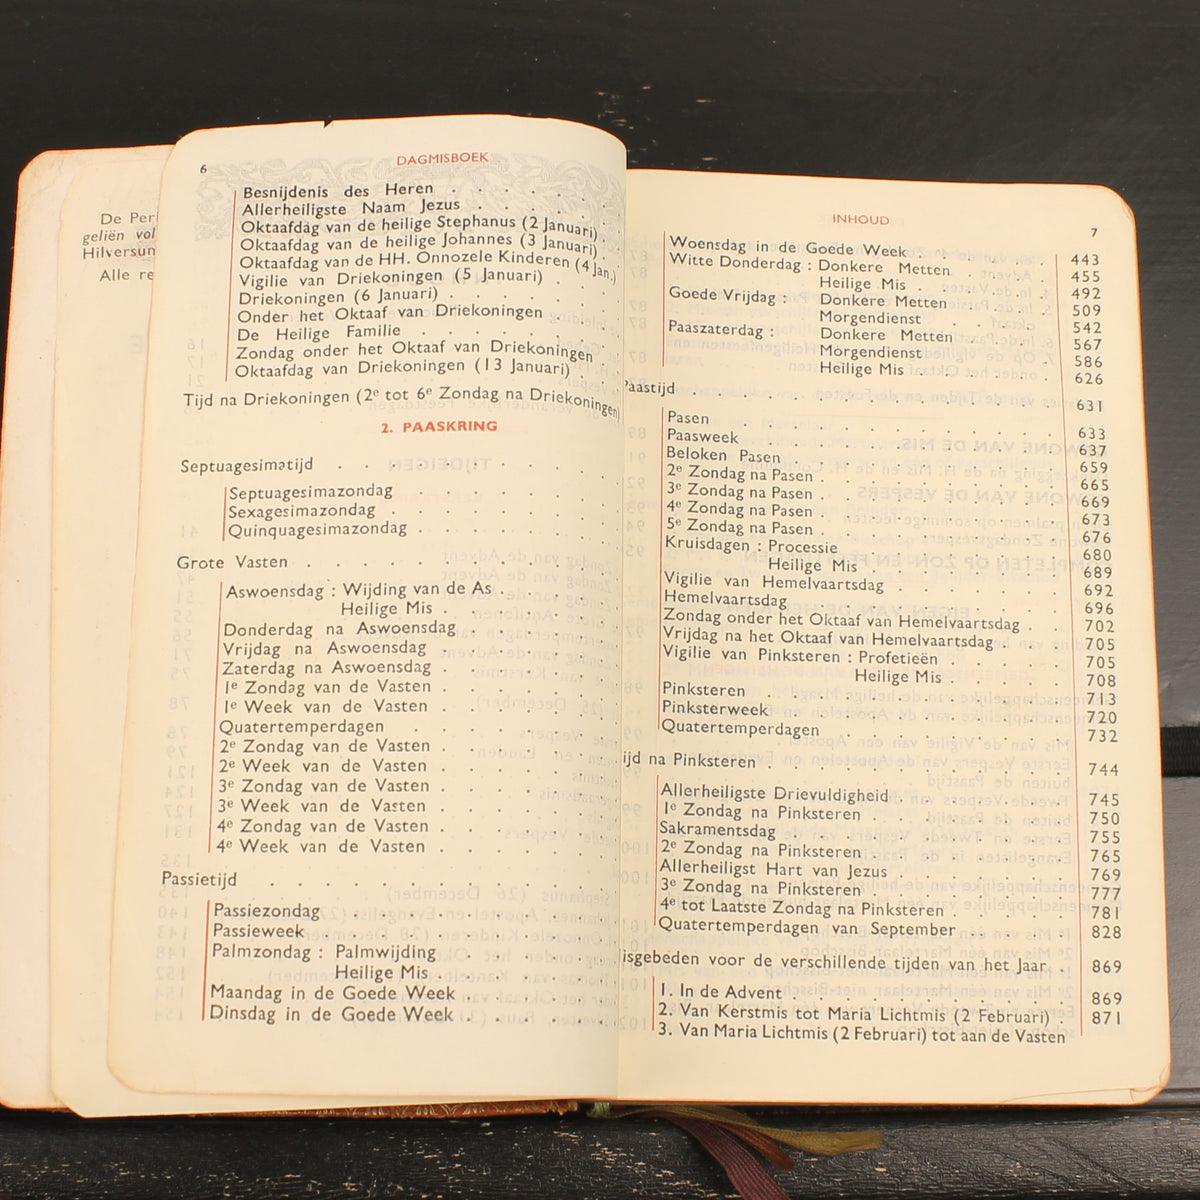 De Peri
geliën vol
Hilversun
Alle re
6
DAGMISBOEK
Besnijdenis des Heren . . . . .
Allerheiligste Naam Jezus . . . .
Oktaafdag van de heilige Stephanus (2 Januari) .
Oktaafdag van de heilige Johannes (3 Januari) .
Oktaafdag van de HH. Onnozele Kinderen (4 Jan.)
Vigilie van Driekoningen (5 Januari) . .
Driekoningen (6 Januari) . . . . .
Onder het Oktaaf van Driekoningen . .
De Heilige Familie . . . . . .
Zondag onder het Oktaaf van Driekoningen
Oktaafdag van Driekoningen (13 Januari) .
Tijd na Driekoningen (2e tot 6e Zondag na Driekoningen)
2. PAASKRING
Septuagesimatijd . . . . . . . .
Septuagesimazondag . . . . . .
Sexagesimazondag . . . . . .
Quinquagesimazondag . . . . . .
Grote Vasten . . . . . . . . .
Aswoensdag : Wijding van de As . . . .
Heilige Mis . . . . .
Donderdag na Aswoensdag . . . .
Vrijdag na Aswoensdag . . . . .
Zaterdag na Aswoensdag . . . . .
1e Zondag van de Vasten . . . . .
1e Week van de Vasten . . . . .
Quatertemperdagen . . . . . .
2e Zondag van de Vasten . . . . .
2e Week van de Vasten . . . . .
3e Zondag van de Vasten . . . . .
3e Week van de Vasten . . . . .
4e Zondag van de Vasten . . . . .
4e Week van de Vasten . . . . .
Passietijd . . . . . . . . . .
Passiezondag . . . . . . . .
Passieweek . . . . . . . .
Palmzondag : Palmwijding . . . . .
Heilige Mis . . . . .
Maandag in de Goede Week . . . .
Dinsdag in de Goede Week . . . .
INHOUD
7
Woensdag in de Goede Week . . . . 443
Witte Donderdag : Donkere Metten . . . 455
Heilige Mis . . . . 492
Goede Vrijdag : Donkere Metten . . . 509
Morgendienst . . . 542
Paaszaterdag : Donkere Metten . . . 567
Morgendienst . . . 586
Heilige Mis . . . . 626
Paastijd . . . . . . . . . . 631
Pasen . . . . . . . . . 633
Paasweek . . . . . . . . 637
Beloken Pasen . . . . . . . 659
2e Zondag na Pasen . . . . . . 665
3e Zondag na Pasen . . . . . . 669
4e Zondag na Pasen . . . . . . 673
5e Zondag na Pasen . . . . . . 676
Kruisdagen : Processie . . . . . 680
Heilige Mis . . . . . 689
Vigilie van Hemelvaartsdag . . . . 692
Hemelvaartsdag . . . . . . . 696
Zondag onder het Oktaaf van Hemelvaartsdag . 702
Vrijdag na het Oktaaf van Hemelvaartsdag . . 705
Vigilie van Pinksteren : Profetieën . . . 705
Heilige Mis . . . 708
Pinksteren . . . . . . . . 713
Pinksterweek . . . . . . . 720
Quatertemperdagen . . . . . . 732
ijd na Pinksteren . . . . . . . . 744
Allerheiligste Drievuldigheid . . . . 745
1e Zondag na Pinksteren . . . . . 750
Sakramentsdag . . . . . . . 755
2e Zondag na Pinksteren . . . . . 765
Allerheiligst Hart van Jezus . . . . 769
3e Zondag na Pinksteren . . . . . 777
4e tot Laatste Zondag na Pinksteren . . . 781
Quatertemperdagen van September . . . 828
isgebeden voor de verschillende tijden van het Jaar . 869
1. In de Advent . . . . . . . 869
2. Van Kerstmis tot Maria Lichtmis (2 Februari) . 871
3. Van Maria Lichtmis (2 Februari) tot aan de Vasten